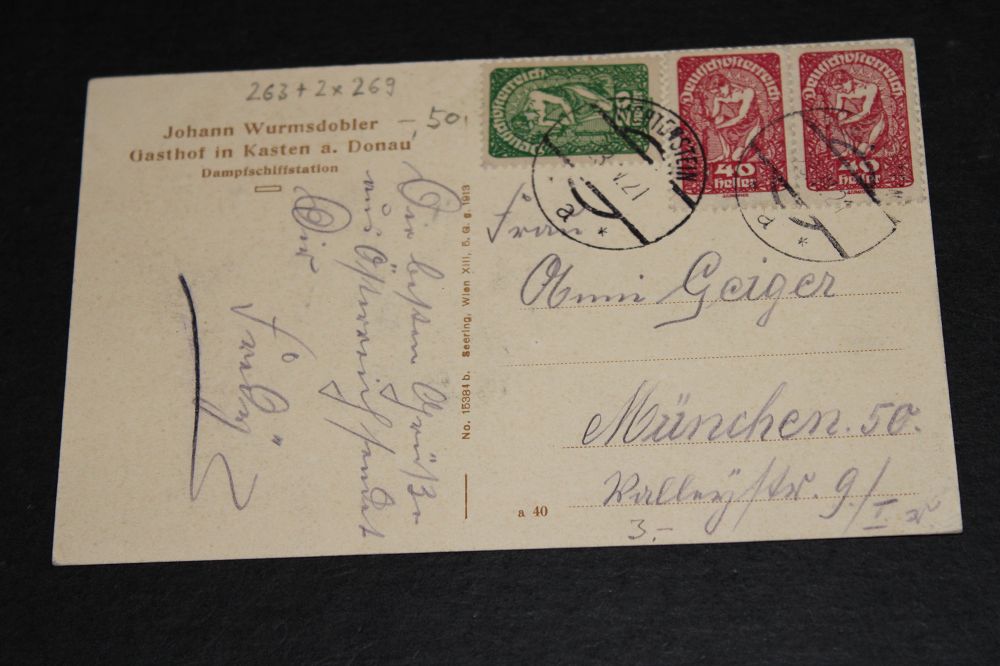 263 + 2 x 269
-,50
Johann Wurmsdobler
Gasthof in Kasten a. Donau
Dampfschiffstation
Die besten Grüße
aus Österreich sendet
Dir
No. 15384 b. Seering, Wien XIII, 5. G. g. 1913
Deutschösterreich
Deutschösterreich
40
heller
Deutschösterreich
40
heller
a
*
a
*
Frau
Anni Geiger
München. 50.
Valleystr. 9/I r
a 40
3.-